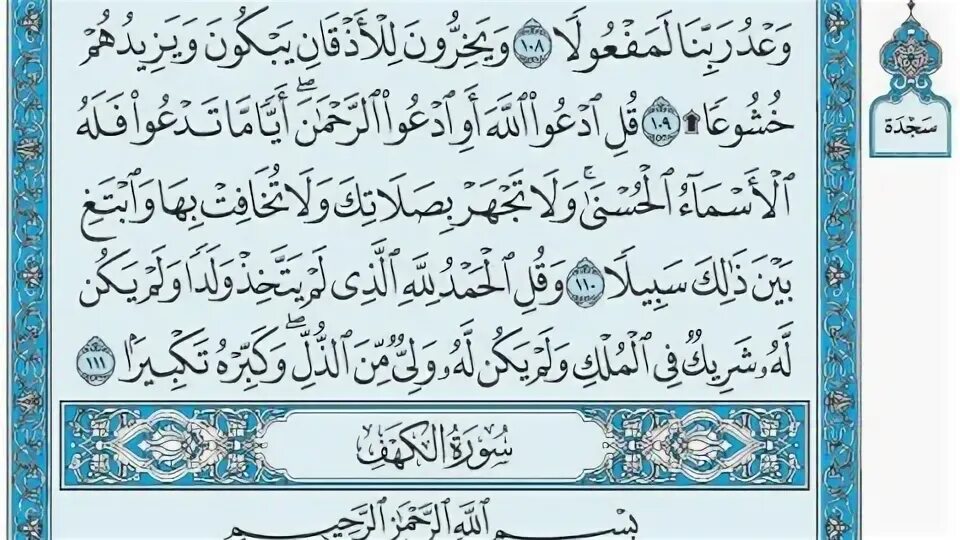 وَعْدُ رَبِّنَا لَمَفْعُولًا ١٠٨ وَيَخِرُّونَ لِلْأَذْقَانِ يَبْكُونَ وَيَزِيدُهُمْ
خُشُوعًا ۩ ١٠٩ قُلِ ٱدْعُوا۟ ٱللَّهَ أَوِ ٱدْعُوا۟ ٱلرَّحْمَٰنَ ۖ أَيًّا مَّا تَدْعُوا۟ فَلَهُ
ٱلْأَسْمَآءُ ٱلْحُسْنَىٰ ۚ وَلَا تَجْهَرْ بِصَلَاتِكَ وَلَا تُخَافِتْ بِهَا وَٱبْتَغِ
بَيْنَ ذَٰلِكَ سَبِيلًا ١١٠ وَقُلِ ٱلْحَمْدُ لِلَّهِ ٱلَّذِى لَمْ يَتَّخِذْ وَلَدًا وَلَمْ يَكُن
لَّهُۥ شَرِيكٌ فِى ٱلْمُلْكِ وَلَمْ يَكُن لَّهُۥ وَلِىٌّ مِّنَ ٱلذُّلِّ ۖ وَكَبِّرْهُ تَكْبِيرًۢا ١١١
سُورَةُ الكَهْفِ
بِسْمِ ٱللَّهِ ٱلرَّحْمَٰنِ ٱلرَّحِيمِ
سَجْدَة